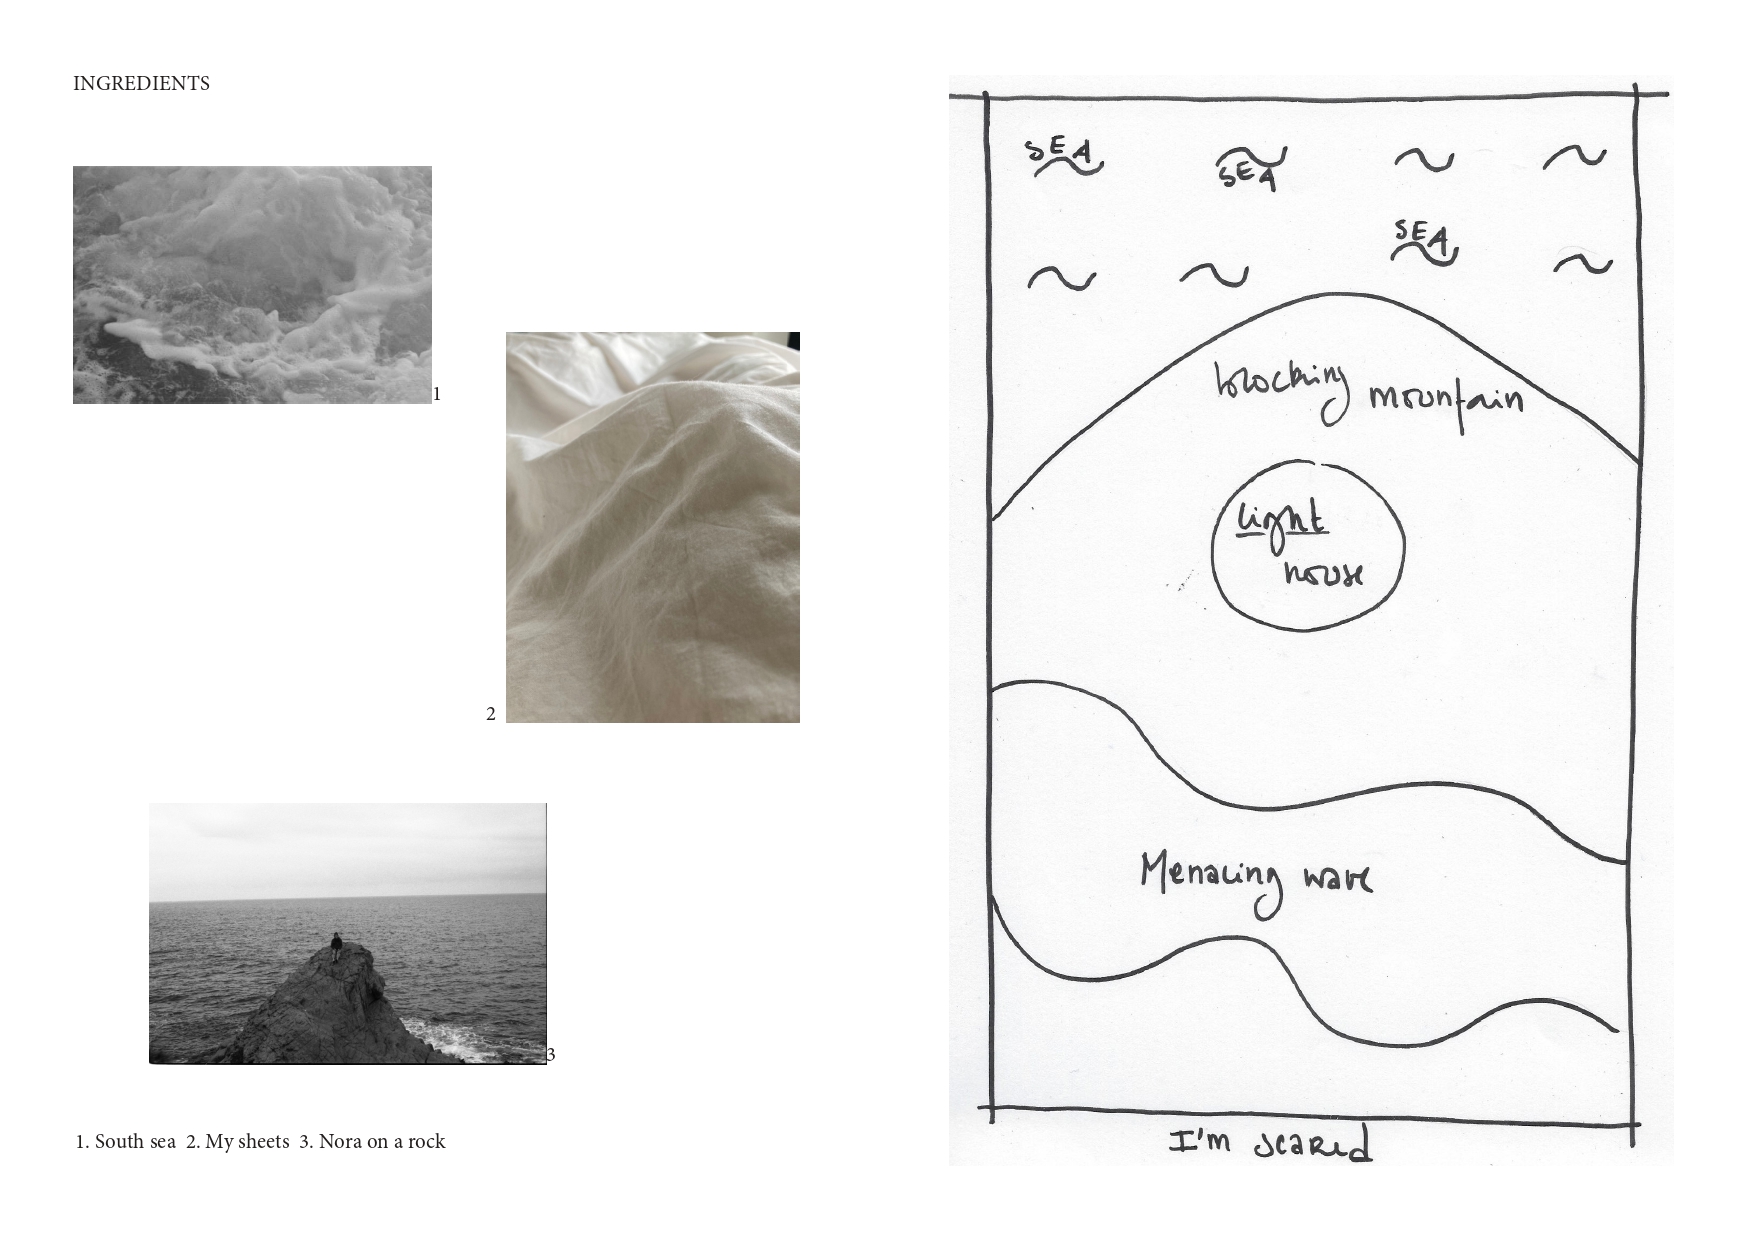 INGREDIENTS
1
2
3
1. South sea 2. My sheets 3. Nora on a rock
SEA
SEA
SEA
blocking mountain
light
house
Menacing wave
I'm scared